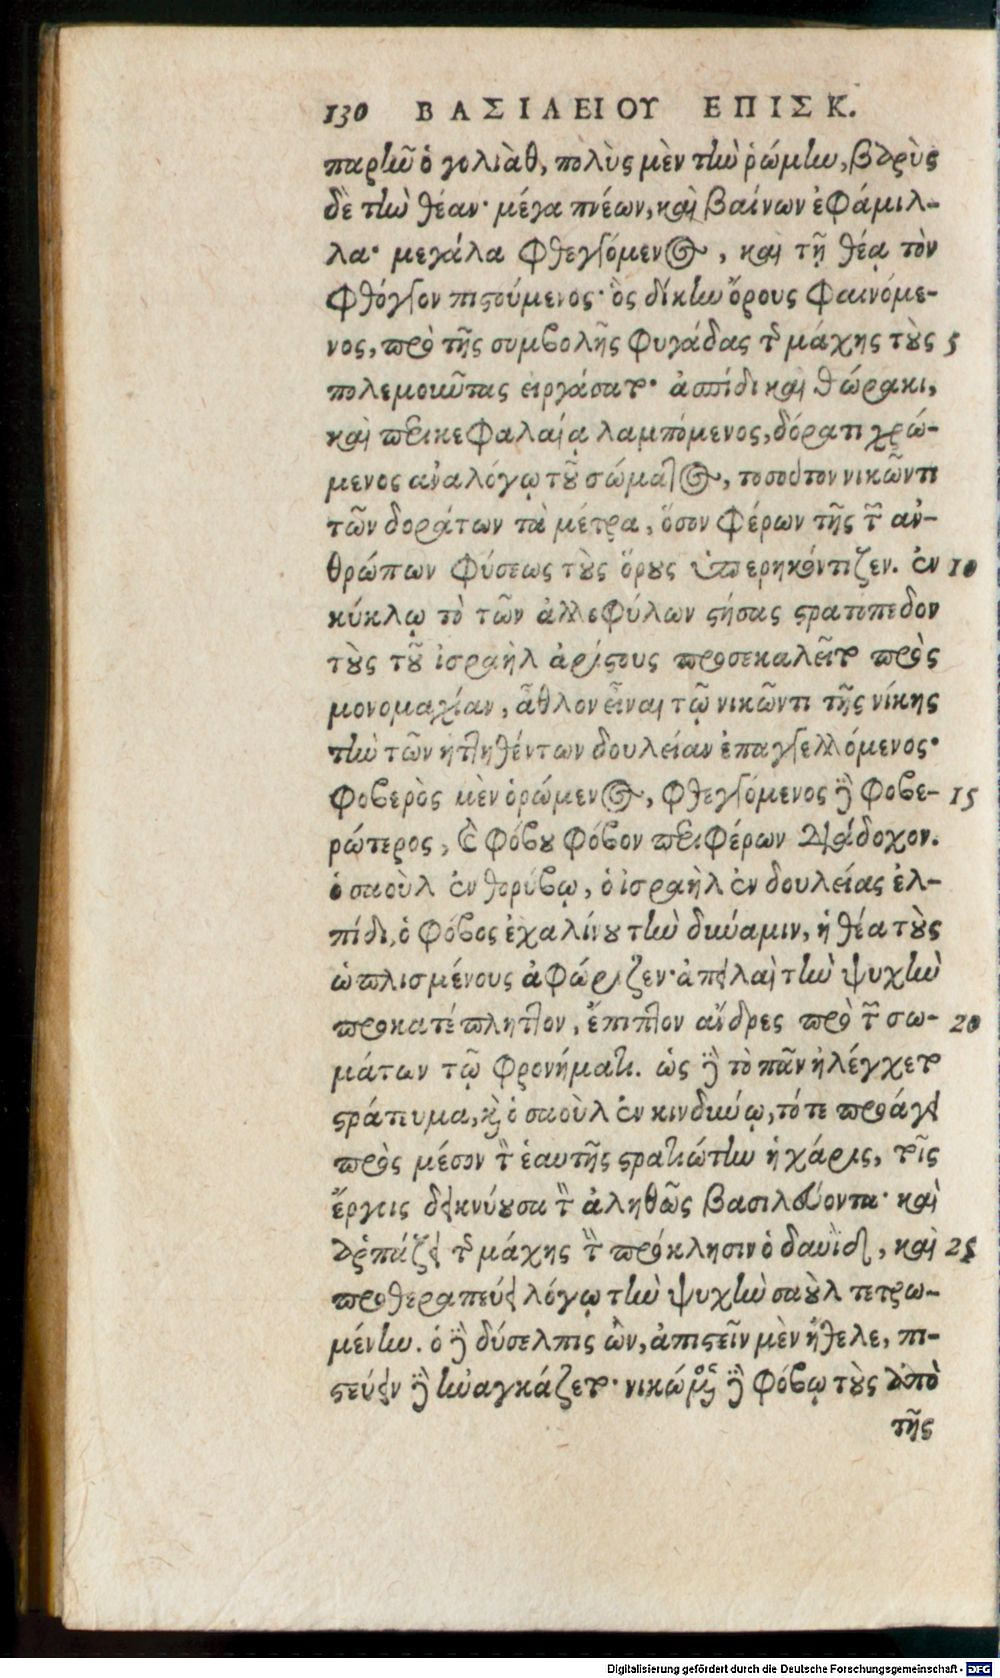 130 ΒΑΣΙΛΕΙΟΥ ΕΠΙΣΚ.
παρῆν ὁ γολιὰθ, πολὺς μὲν τὴν ῥώμην, βαρὺς
δὲ τὴν θέαν· μέγα πνέων, καὶ βαίνων ἐφάμιλ-
λα· μεγάλα φθεγγόμενος, καὶ τῇ θέᾳ τὸν
φθόγγον πιστούμενος· ὃς δίκην ὄρους φαινόμε-
νος, πρὸ τῆς συμβολῆς φυγάδας τῆς μάχης τοὺς 5
πολεμοῦντας εἰργάσατο· ἀσπίδι καὶ θώρακι,
καὶ περικεφαλαίᾳ λαμπόμενος, δόρατι χρώ-
μενος ἀναλόγῳ τοῦ σώματος, τοσοῦτον νικῶντι
τῶν δοράτων τὰ μέτρα, ὅσον φέρων τῆς τῶν ἀν-
θρώπων φύσεως τοὺς ὅρους ὑπερηκόντιζεν. ἐν 10
κύκλῳ τὸ τῶν ἀλλεφύλων στήσας στρατόπεδον
τοὺς τοῦ ἰσραὴλ ἀρίστους προσεκαλεῖτο πρὸς
μονομαχίαν, ἆθλον εἶναι τῷ νικῶντι τῆς νίκης
τὴν τῶν ἡττηθέντων δουλείαν ἐπαγγελλόμενος·
φοβερὸς μὲν ὁρώμενος, φθεγγόμενος δὲ φοβε- 15
ρώτερος, καὶ φόβου φόβον περιφέρων διάδοχον.
ὁ σαοὺλ ἐν θορύβῳ, ὁ ἰσραὴλ ἐν δουλείας ἐλ-
πίδι, ὁ φόβος ἐχαλίνου τὴν δύναμιν, ἡ θέα τοὺς
ὡπλισμένους ἀφώριζεν· ἀπειλαὶ τὴν ψυχὴν
προκατέπληττον, ἔπιπτον ἄνδρες πρὸ τῶν σω- 20
μάτων τῷ φρονήματι. ὡς δὲ τὸ πᾶν ἠλέγχετο
στράτευμα, καὶ ὁ σαοὺλ ἐν κινδύνῳ, τότε προάγει
πρὸς μέσον τὸν ἑαυτῆς στρατιώτην ἡ χάρις, τοῖς
ἔργοις δεικνύουσα τὸν ἀληθῶς βασιλεύοντα· καὶ
ἁρπάζει τῆς μάχης τὴν πρόκλησιν ὁ δαυῒδ, καὶ 25
προθεραπεύει λόγῳ τὴν ψυχὴν σαοὺλ τετρω-
μένην. ὁ δὲ δύσελπις ὢν, ἀπιστεῖν μὲν ἤθελε, πι-
στεύειν δὲ ἠναγκάζετο· νικώμενος δὲ φόβῳ τοὺς ἀπὸ
τῆς
Digitalisierung gefördert durch die Deutsche Forschungsgemeinschaft - DFG